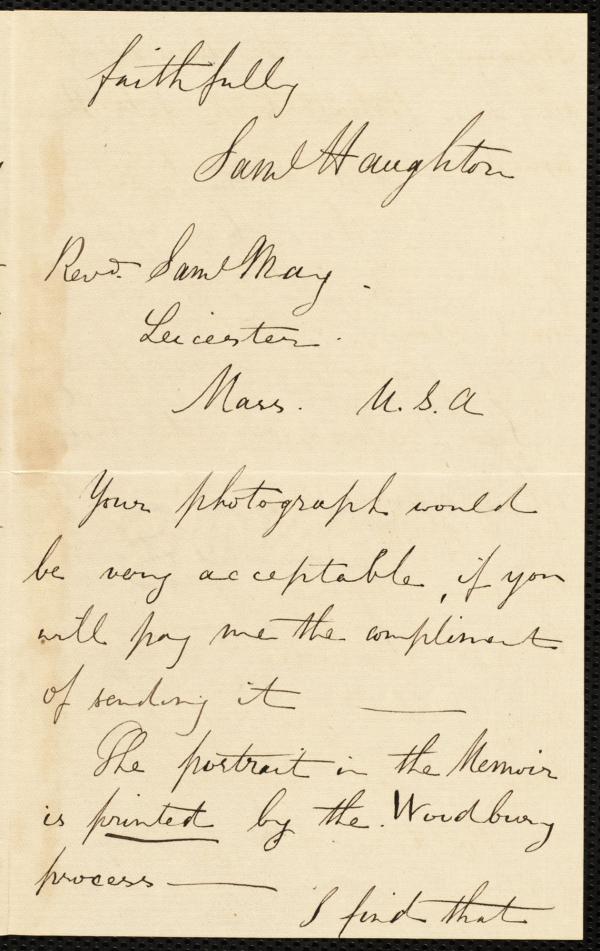 faithfully
Saml Haughton
Revd. Saml May.
Leicester.
Mass. U.S.A
Your photograph would
be very acceptable, if you
will pay me the compliment
of sending it —
The portrait in the Memoir
is printed by the Woodbury
process —
I find that